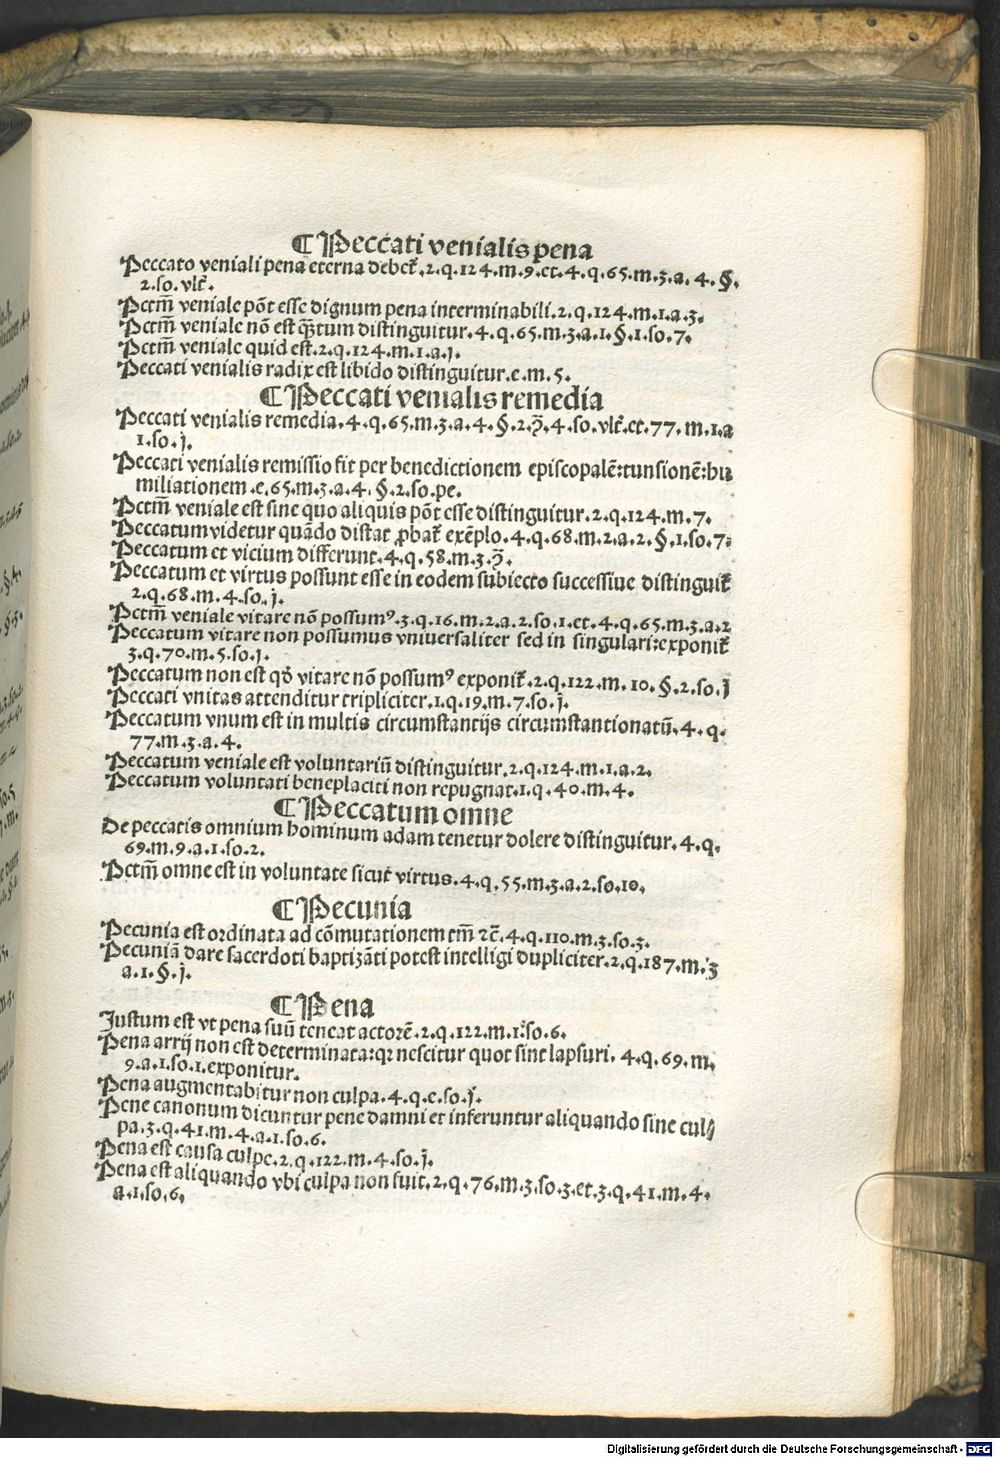 ¶ Peccati venialis pena
Peccato veniali pena eterna debet᷒.2.q.124.m.9.et.4.q.65.m.3.a.4.§.
2.so.vlt᷒.
Pctm̄ veniale pōt esse dignum pena interminabili.2.q.124.m.1.a.3.
Pctm̄ veniale nō est q̄tum distinguitur.4.q.65.m.3.a.1.§.1.so.7.
Pctm̄ veniale quid est.2.q.124.m.1.a.j.
Peccati venialis radix est libido distinguitur.e.m.5.
¶ Peccati venialis remedia
Peccati venialis remedia.4.q.65.m.3.a.4.§.2.ꝟ.4.so.vlt᷒.et.77.m.1.a
1.so.j.
Peccati venialis remissio fit per benedictionem episcopalē:tunsionē:hu
miliationem.e.65.m.3.a.4.§.2.so.pe.
Pctm̄ veniale est sine quo aliquis pōt esse distinguitur.2.q.124.m.7.
Peccatum videtur quādo distat ꝓbat᷒ exēplo.4.q.68.m.2.a.2.§.1.so.7.
Peccatum et vicium differunt.4.q.58.m.3.ꝟ.
Peccatum et virtus possunt esse in eodem subiecto successiue distinguit᷒
2.q.68.m.4.so.j.
Pctm̄ veniale vitare nō possumꝰ.3.q.16.m.2.a.2.so.1.et.4.q.65.m.3.a.2
Peccatum vitare non possumus vniuersaliter sed in singulari:exponit᷒
3.q.70.m.5.so.j.
Peccatum non est qd̓ vitare nō possumꝰ exponit᷒.2.q.122.m.10.§.2.so.j
Peccati vnitas attenditur tripliciter.1.q.19.m.7.so.j.
Peccatum vnum est in multis circumstantijs circumstantionatū.4.q.
77.m.3.a.4.
Peccatum veniale est voluntariū distinguitur.2.q.124.m.1.a.2.
Peccatum voluntati beneplaciti non repugnat.1.q.40.m.4.
¶ Peccatum omne
De peccatis omnium hominum adam tenetur dolere distinguitur.4.q.
69.m.9.a.1.so.2.
Pctm̄ omne est in voluntate sicut virtus.4.q.55.m.3.a.2.so.10.
¶ Pecunia
Pecunia est ordinata ad cōmutationem tm̄ ⁊c̄.4.q.110.m.3.so.3.
Pecuniā dare sacerdoti baptizāti potest intelligi dupliciter.2.q.187.m.3
a.1.§.j.
¶ Pena
Justum est vt pena suū teneat actorē.2.q.122.m.1.so.6.
Pena arrij non est determinata:qꝛ nescitur quot sint lapsuri.4.q.69.m.
9.a.1.so.1.exponitur.
Pena augmentabitur non culpa.4.q.e.so.j.
Pene canonum dicuntur pene damni et inferuntur aliquando sine cul
pa.3.q.41.m.4.a.1.so.6.
Pena est causa culpe.2.q.122.m.4.so.j.
Pena est aliquando vbi culpa non fuit.2.q.76.m.3.so.3.et.3.q.41.m.4.
a.1.so.6.
Digitalisierung gefördert durch die Deutsche Forschungsgemeinschaft - DFG